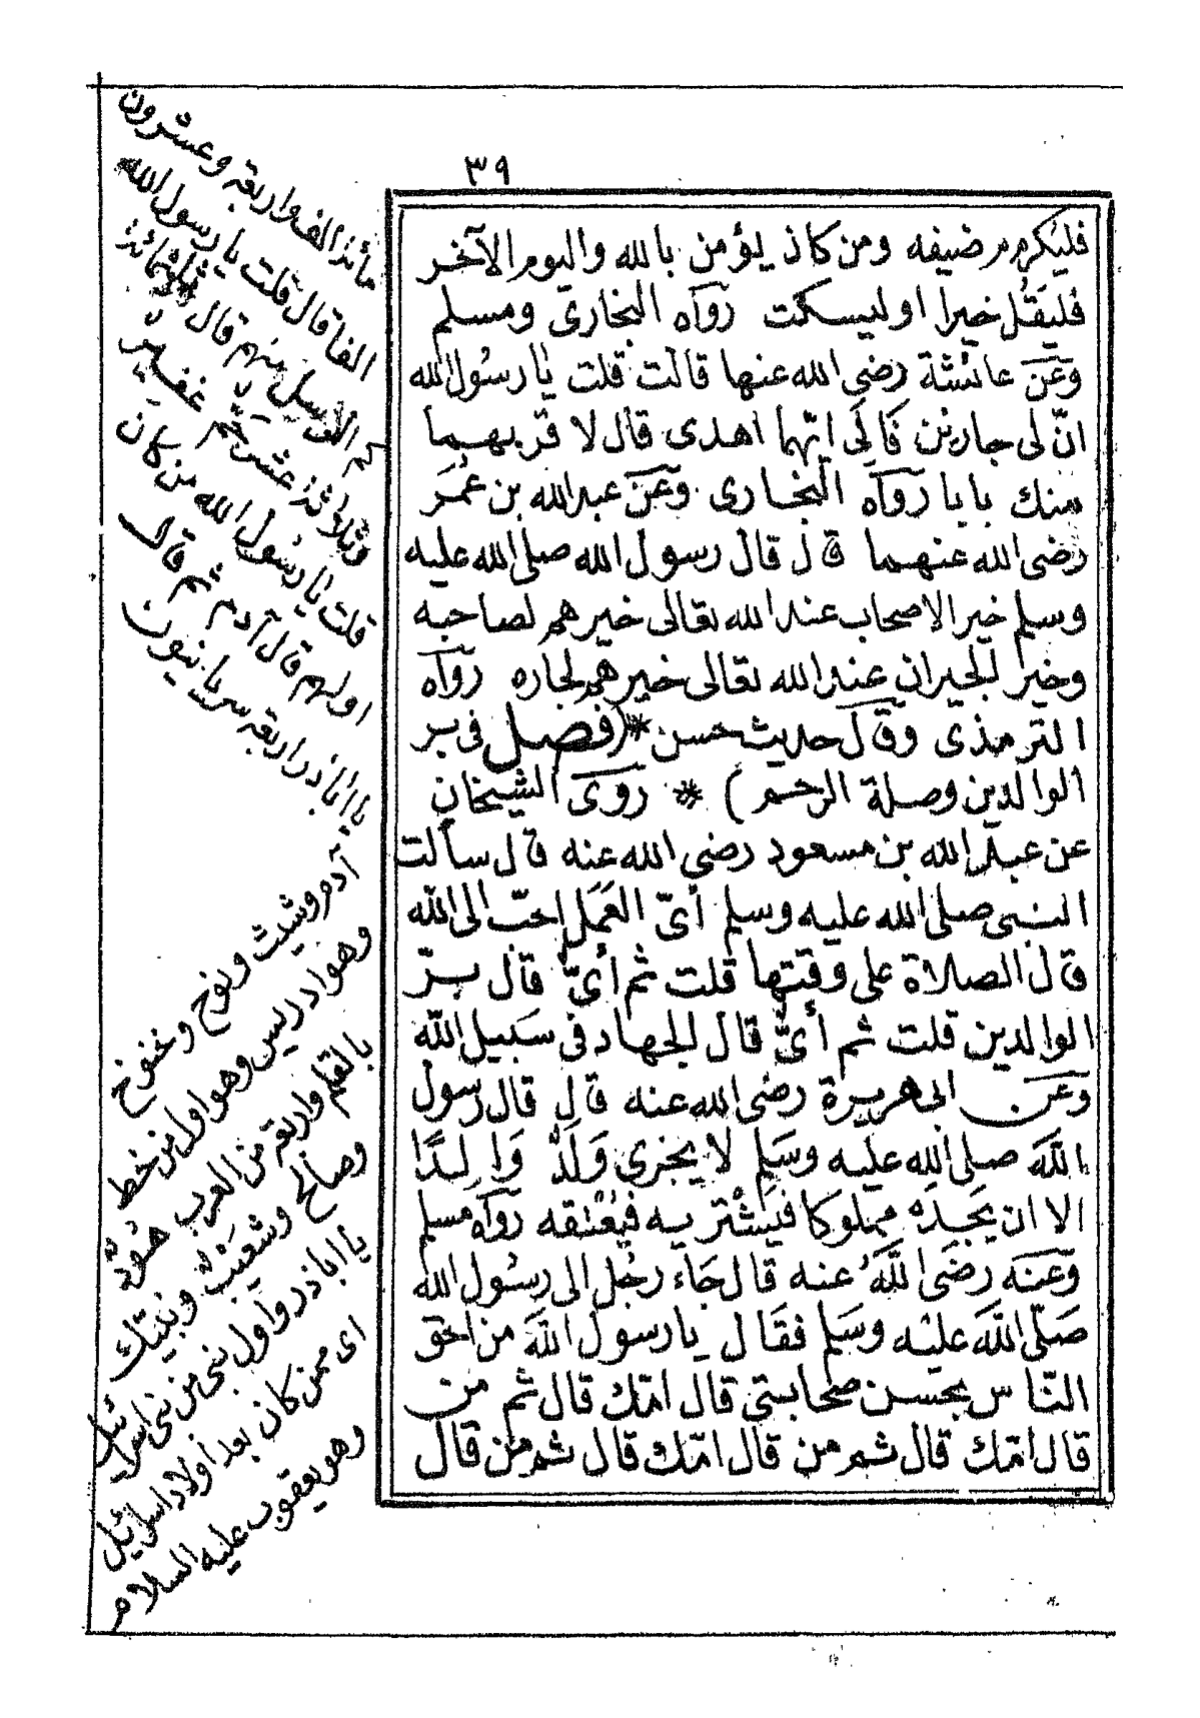 ٣٩
فليكرم ضيفه ومن كان يؤمن بالله واليوم الآخر
فليَقُل خيرا اوليسكت روآه البخارى ومسلم
وعن عائشة رضى الله عنها قالت قلت يا رسُول الله
انّ لى جارين فَالَى ايّهما اهدى قال لا قربهما
منك بابا روآه البخارى وعن عبد الله بن عُمَر
رضى الله عنهما قال قال رسول الله صلى الله عليه
وسلم خير الاصحاب عند الله تعالى خيرهم لصاحبه
وخير الجيران عند الله تعالى خيرهم لجاره روآه
الترمذى وقال حديث حسن * (فصل فى بر
الوالدين وصلة الرحم) * روى الشيخان
عن عبد الله بن مسعود رضى الله عنه قال سألت
النبى صلى الله عليه وسلم أىّ العَمَل احبّ الى الله
قال الصلاة على وقتها قلت ثم أىّ قال برّ
الوالدين قلت ثم أىّ قال الجهاد فى سَبيل الله
وعن ابى هريرة رضى الله عنه قال قال رسول
الله صلى الله عليه وسَلم لا يجزى وَلَدٌ وَالِدًا
الا ان يَجِدَه مملوكا فيَشْتريه فيُعْتقه روآه مسلم
وعَنه رضَى اللهُ عنه قال جَاء رجُل الى رسُول الله
صَلّى الله عليْه وسَلم فقَال يا رسول الله من احق
النّاس بحسن صحابتى قال امّك قال ثم من
قال امّك قال ثم من قال امّك قال ثم من قال
مائة الف واربعة وعشرون
الفا قال قلت يا رسول الله
كم المرسل منهم قال ثلثمائة
وثلاثة عشر جمّ غفير
قلت يا رسُول الله من كان
اولهم قال آدم ثم قال
يا ابا ذر اربعة سريانيون
آدم وشيث ونوح وخنوخ
وهو ادريس وهو اول من خط
بالقلم واربعة من العرب هُودٌ
وصالح وشعَيْبٌ ونبيّك
يا ابا ذر واول نبى من بنى اسرائيل
اى ممن كان بعد اولاد اسرائيل
وهو يعقوب عليه السلام